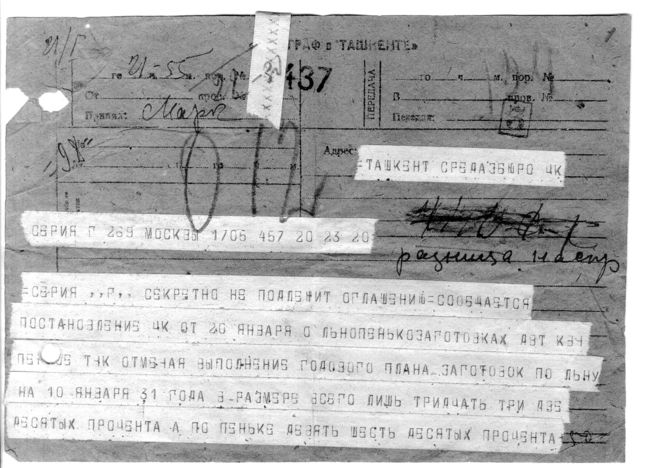 21/I
ГРАФ в ТАШКЕНТЕ»
1
го 21 ч. 55 м. пор. №
437
го ч. м. пор. №
От пров. №
В пров. №
Принял: Марк
ПЕРЕДАЧА
012
Адрес:
=ТАШКЕНТ СРЕДАЗБЮРО ЧК
СЕРИЯ Г 269 МОСКВЫ 1706 457 20 23 20=
=СЕРИЯ ,,Г,, СЕКРЕТНО НЕ ПОДЛЕЖИТ ОГЛАШЕНИЮ=СООБЧАЕТСЯ
ПОСТАНОВЛЕНИЕ ЧК ОТ 20 ЯНВАРЯ О ЛЬНОПЕНЬКОЗАГОТОВКАХ ДВТ КВЧ
ПЕРВОЕ ТЧК ОТМЕЧАЯ ВЫПОЛНЕНИЕ ГОДОВОГО ПЛАНА ЗАГОТОВОК ПО ЛЬНУ
НА 10 ЯНВАРЯ 31 ГОДА В РАЗМЕРЕ ВСЕГО ЛИШЬ ТРИДЧАТЬ ТРИ ДВЕ
ДЕСЯТЫХ ПРОЧЕНТА А ПО ПЕНЬКЕ ДЕВЯТЬ ШЕСТЬ ДЕСЯТЫХ ПРОЧЕНТА